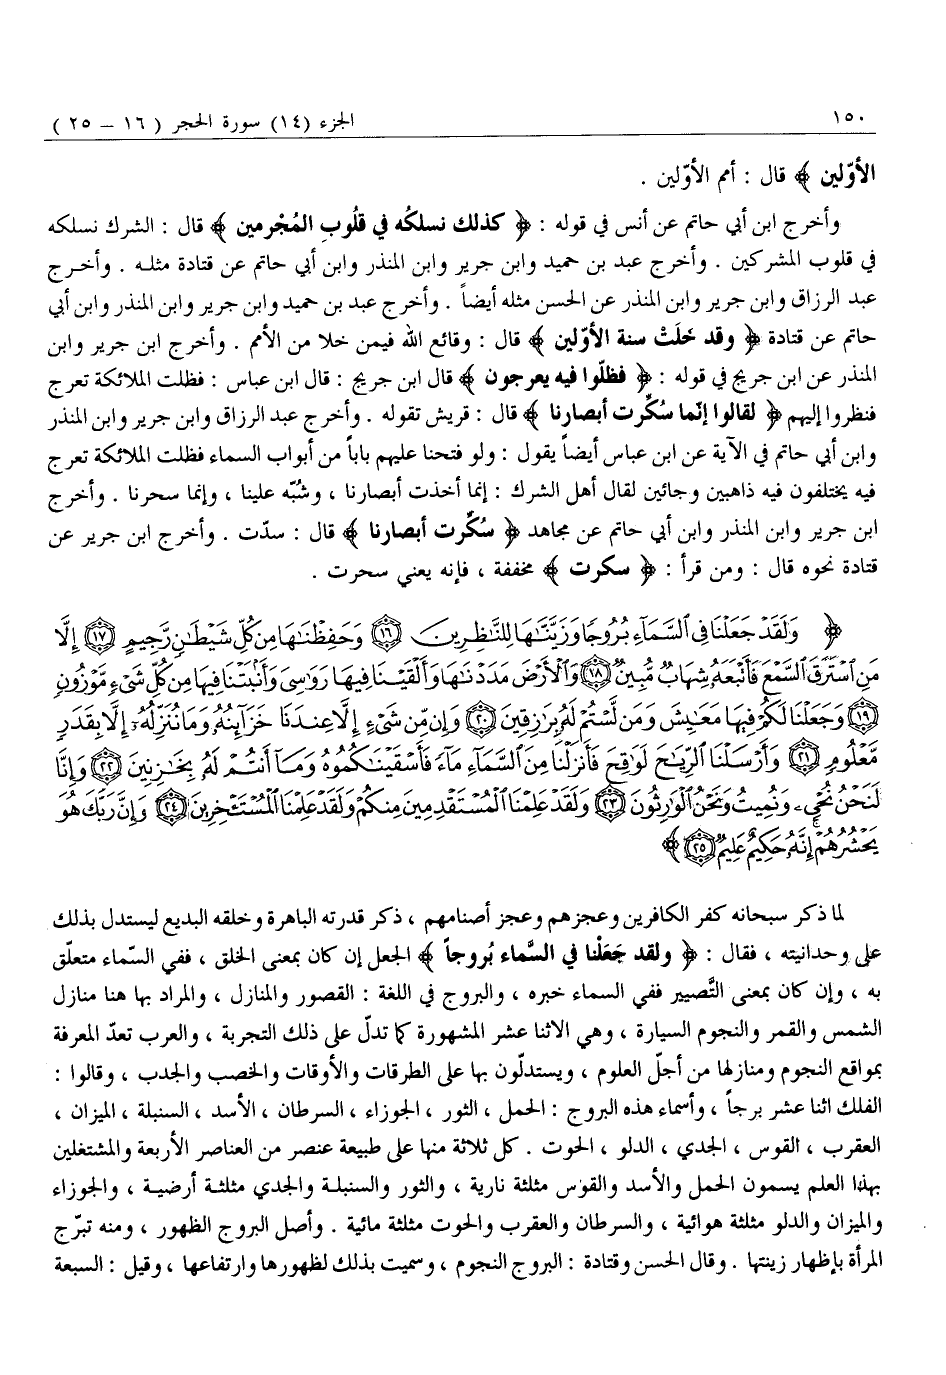 ١٥٠
الجزء (١٤) سورة الحجر ( ١٦ – ٢٥ )
الأوّلين ﴾ قال : أمم الأوّلين .
وأخرج ابن أبي حاتم عن أنس في قوله : ﴿ كذلك نسلكُه في قلُوبِ المُجْرمين ﴾ قال : الشرك نسلكه
في قلوب المشركين . وأخرج عبد بن حميد وابن جرير وابن المنذر وابن أبي حاتم عن قتادة مثله . وأخرج
عبد الرزاق وابن جرير وابن المنذر عن الحسن مثله أيضاً . وأخرج عبد بن حميد وابن جرير وابن المنذر وابن أبي
حاتم عن قتادة ﴿ وقد خلَتْ سنة الأوّلين ﴾ قال : وقائع الله فيمن خلا من الأمم . وأخرج ابن جرير وابن
المنذر عن ابن جريج في قوله : ﴿ فظلّوا فيه يعرجون ﴾ قال ابن جريج : قال ابن عباس : فظلت الملائكة تعرج
فنظروا إليهم ﴿ لقالوا إنّما سُكِّرت أبصارنا ﴾ قال : قريش تقوله . وأخرج عبد الرزاق وابن جرير وابن المنذر
وابن أبي حاتم في الآية عن ابن عباس أيضاً يقول : ولو فتحنا عليهم باباً من أبواب السماء فظلت الملائكة تعرج
فيه يختلفون فيه ذاهبين وجائين لقال أهل الشرك : إنما أخذت أبصارنا ، وشُبّه علينا ، وإنما سحرنا . وأخرج
ابن جرير وابن المنذر وابن أبي حاتم عن مجاهد ﴿ سُكِّرت أبصارنا ﴾ قال : سدّت . وأخرج ابن جرير عن
قتادة نحوه قال : ومن قرأ : ﴿ سكرت ﴾ مخففة ، فإنه يعني سحرت .
﴿ وَلَقَدْ جَعَلْنَا فِي السَّمَآءِ بُرُوجًا وَزَيَّنَّٰهَا لِلنَّٰظِرِينَ ١٦ وَحَفِظْنَٰهَا مِن كُلِّ شَيْطَٰنٍ رَّجِيمٍ ١٧ إِلَّا
مَنِ ٱسْتَرَقَ ٱلسَّمْعَ فَأَتْبَعَهُۥ شِهَابٌ مُّبِينٌ ١٨ وَٱلْأَرْضَ مَدَدْنَٰهَا وَأَلْقَيْنَا فِيهَا رَوَٰسِيَ وَأَنۢبَتْنَا فِيهَا مِن كُلِّ شَيْءٍ مَّوْزُونٍ
١٩ وَجَعَلْنَا لَكُمْ فِيهَا مَعَٰيِشَ وَمَن لَّسْتُمْ لَهُۥ بِرَٰزِقِينَ ٢٠ وَإِن مِّن شَيْءٍ إِلَّا عِندَنَا خَزَآئِنُهُۥ وَمَا نُنَزِّلُهُۥٓ إِلَّا بِقَدَرٍ
مَّعْلُومٍ ٢١ وَأَرْسَلْنَا ٱلرِّيَٰحَ لَوَٰقِحَ فَأَنزَلْنَا مِنَ ٱلسَّمَآءِ مَآءً فَأَسْقَيْنَٰكُمُوهُ وَمَآ أَنتُمْ لَهُۥ بِخَٰزِنِينَ ٢٢ وَإِنَّا
لَنَحْنُ نُحْيِۦ وَنُمِيتُ وَنَحْنُ ٱلْوَٰرِثُونَ ٢٣ وَلَقَدْ عَلِمْنَا ٱلْمُسْتَقْدِمِينَ مِنكُمْ وَلَقَدْ عَلِمْنَا ٱلْمُسْتَـْٔخِرِينَ ٢٤ وَإِنَّ رَبَّكَ هُوَ
يَحْشُرُهُمْ إِنَّهُۥ حَكِيمٌ عَلِيمٌ ٢٥ ﴾
لما ذكر سبحانه كفر الكافرين وعجزهم وعجز أصنامهم ، ذكر قدرته الباهرة وخلقه البديع ليستدل بذلك
على وحدانيته ، فقال : ﴿ ولقد جَعَلْنا في السَّماء بُروجاً ﴾ الجعل إن كان بمعنى الخلق ، ففي السّماء متعلّق
به ، وإن كان بمعنى التَّصيير ففي السماء خبره ، والبروج في اللغة : القصور والمنازل ، والمراد بها هنا منازل
الشمس والقمر والنجوم السيارة ، وهي الاثنا عشر المشهورة كما تدلّ على ذلك التجربة ، والعرب تعدّ المعرفة
بمواقع النجوم ومنازلها من أجلّ العلوم ، ويستدلّون بها على الطرقات والأوقات والخصب والجدب ، وقالوا :
الفلك اثنا عشر برجاً ، وأسماء هذه البروج : الحمل ، الثور ، الجوزاء ، السرطان ، الأسد ، السنبلة ، الميزان ،
العقرب ، القوس ، الجدي ، الدلو ، الحوت . كل ثلاثة منها على طبيعة عنصر من العناصر الأربعة والمشتغلين
بهذا العلم يسمون الحمل والأسد والقوس مثلثة نارية ، والثور والسنبلة والجدي مثلثة أرضية ، والجوزاء
والميزان والدلو مثلثة هوائية ، والسرطان والعقرب والحوت مثلثة مائية . وأصل البروج الظهور ، ومنه تبرّج
المرأة بإظهار زينتها . وقال الحسن وقتادة : البروج النجوم ، وسميت بذلك لظهورها وارتفاعها ، وقيل : السبعة